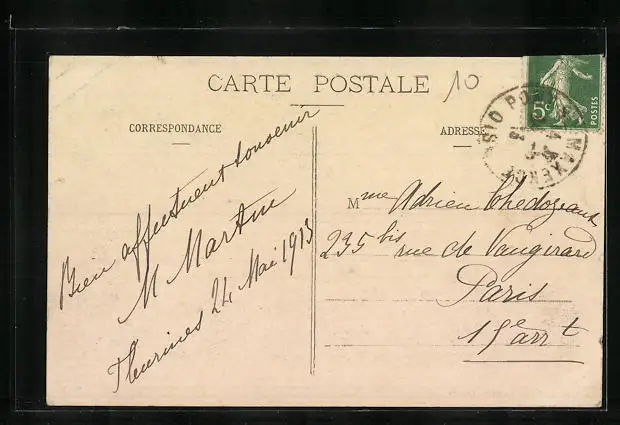 CARTE POSTALE
10
CORRESPONDANCE
Bien affectueux souvenir
M Martin
Fleurines 24 Mai 1913
ADRESSE
Mme Adrien Thedozeaux
235 bis rue de Vaugirard
Paris
15e arrt
5c
POSTES